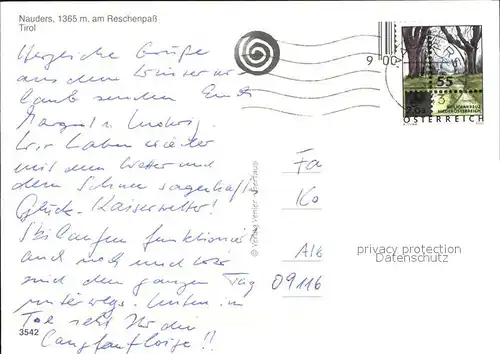 Nauders, 1365 m. am Reschenpaß
Tirol
Herzliche Grüße
aus dem Winterur-
laub senden Euch
Margot u. Ludwig.
Wir haben wieder
mit dem Wetter und
dem Schnee sagenhaft
Glück. Kaiserwetter!
Skilaufen funktioniert
auch noch und wir
sind den ganzen Tag
unterwegs. Unten im
Tal seht Ihr die
Langlaufloipe!!
3542
© Verlag
9 00
55
ÖSTERREICH
Fa
Ko
Alb
09116
privacy protection
Datenschutz